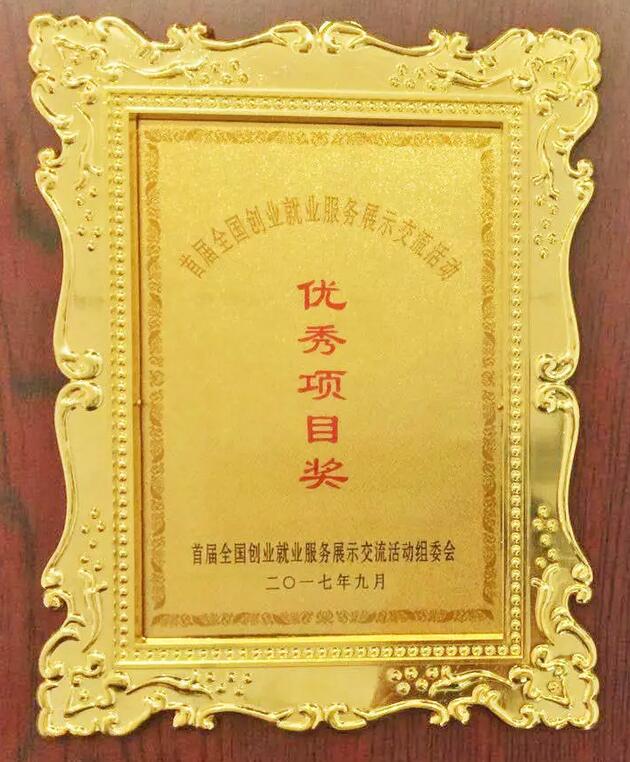 首届全国创业就业服务展示交流活动
优秀项目奖
首届全国创业就业服务展示交流活动组委会
二〇一七年九月